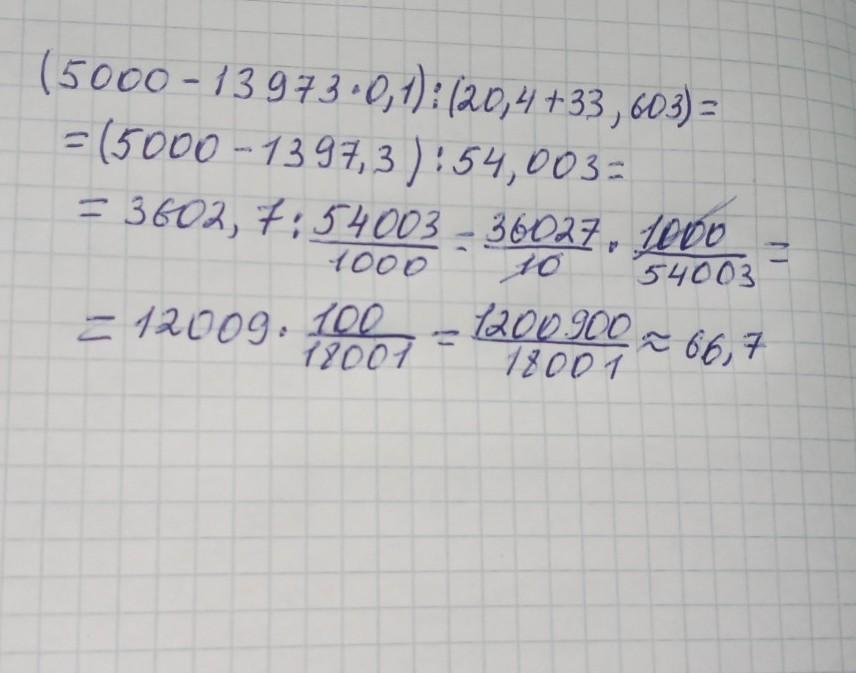 (5000 - 13973 · 0,1) : (20,4 + 33,603) =
= (5000 - 1397,3) : 54,003 =
= 3602,7 : 54003/1000 = 36027/10 · 1000/54003 =
= 12009 · 100/18001 = 1200900/18001 ≈ 66,7